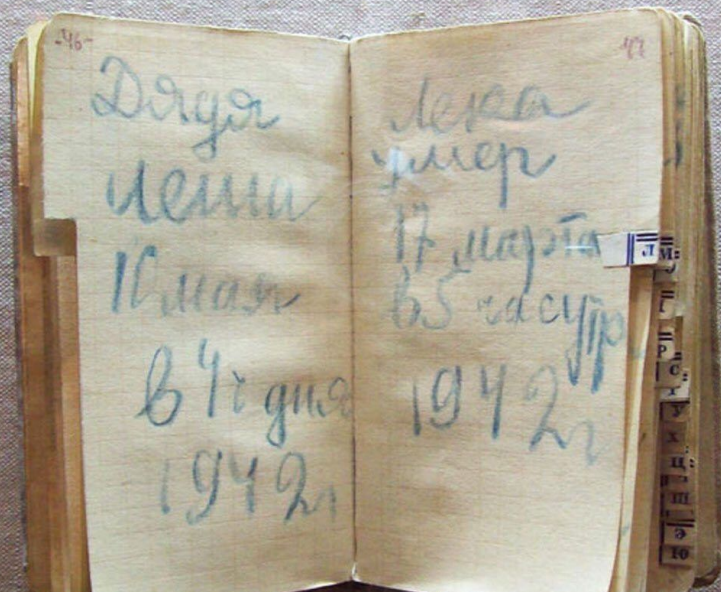 -46-
Дядя
Леша
10 мая
в 4ч дня
1942г
47
Лека
умер
17 марта
в 5 часутр
1942г
Л
М
Р
С
Т
У
Х
Ц
Ш
Э
Ю